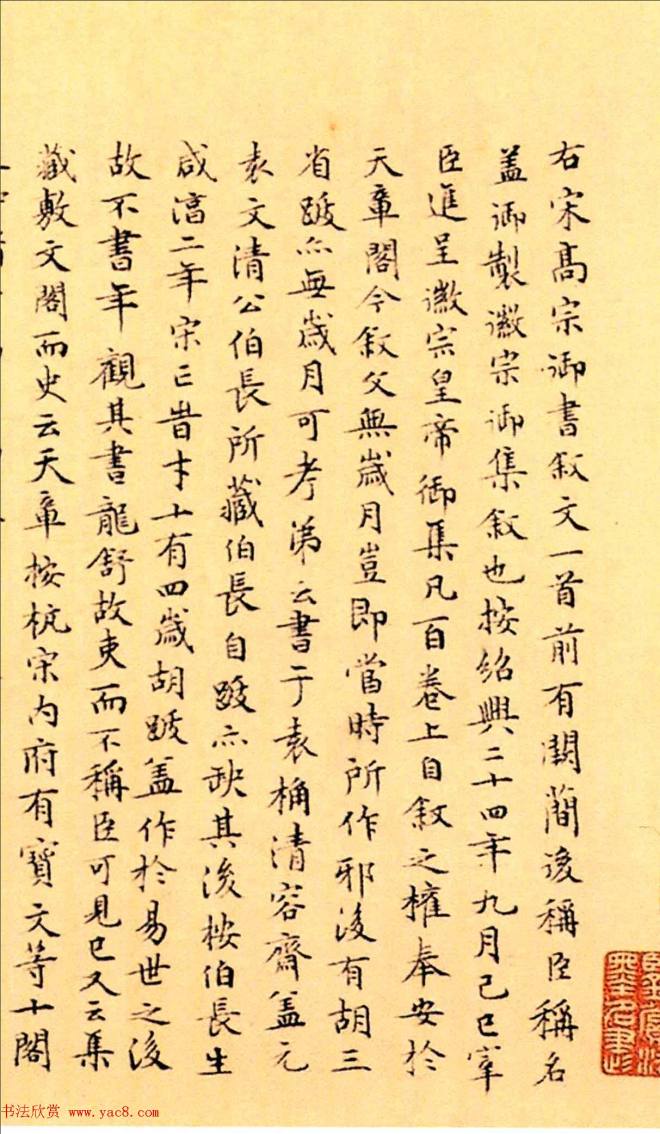 右宋高宗御書敘文一首前有闕蕳後稱臣稱名
蓋御製徽宗御集敘也按紹興二十四年九月己巳宰
臣進呈徽宗皇帝御集凡百卷上自敘之權奉安於
天章閣今敘文無歲月豈即當時所作邪後有胡三
省跋亦無歲月可考第云書于袁桷清容齋蓋元
袁文清公伯長所藏伯長自跋亦缺其後桉伯長生
咸淳二年宋亡昔才十有四歲胡跋蓋作於易世之後
故不書年觀其書龍舒故吏而不稱臣可見已又云集
藏敷文閣而史云天章按杭宋內府有寶文等十閣
书法欣赏 www.yac8.com